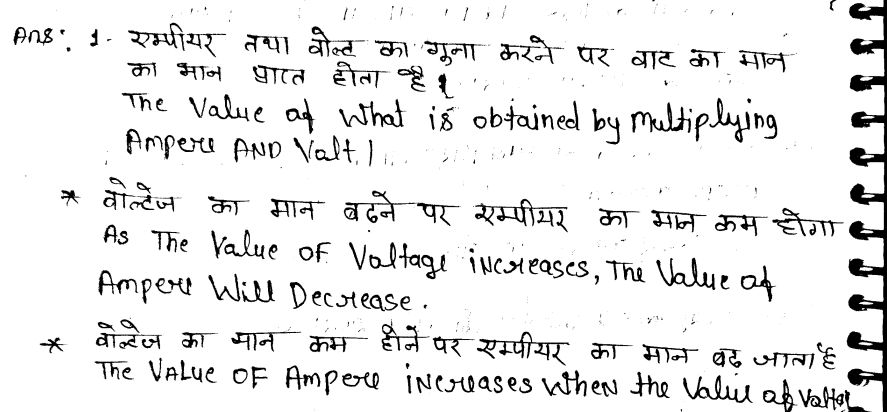 Ans: 1- एम्पीयर तथा वोल्ट का गुना करने पर वाट का मान
का मान प्राप्त होता है।
The Value of What is obtained by Multiplying
Ampere AND Valt.|
* वोल्टेज का मान बढ़ने पर एम्पीयर का मान कम होगा
As The Value OF Voltage increases, The Value of
Ampere Will Decrease.
* वोल्टेज का मान कम होने पर एम्पीयर का मान बढ़ जाता है
The VALue OF Ampere increases When the Value of